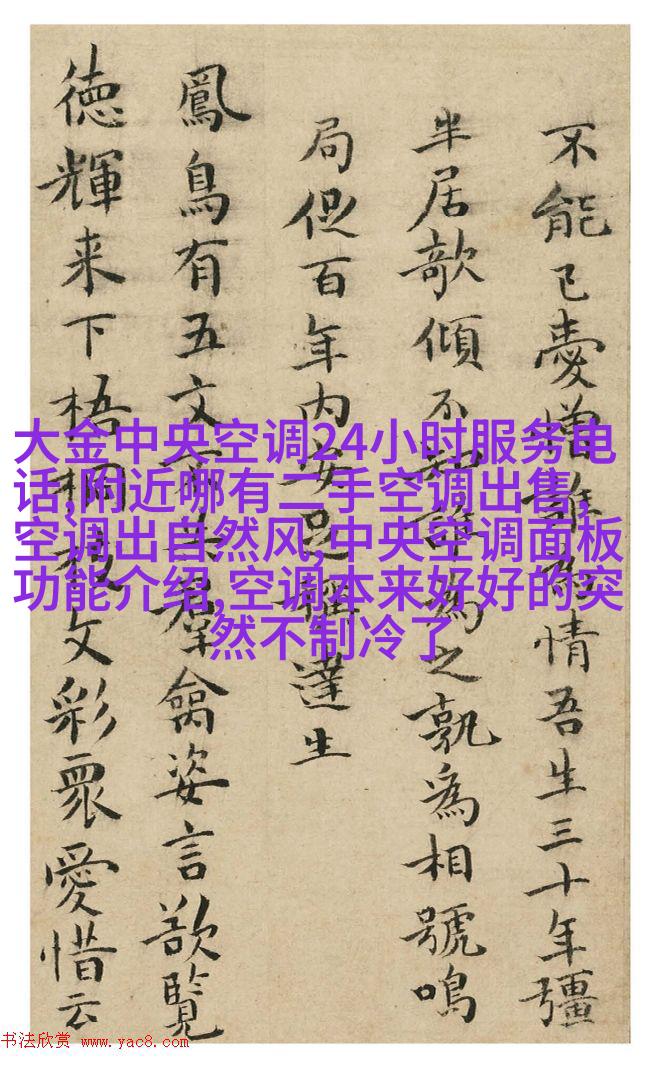 不能已憎情吾生三十年彊
半居欹傾不知誰爲之孰爲相號鳴
局促百年内安足稱達生
鳳鳥有五文羣禽姿言欲覽
徳輝来下梧桐枝文彩眾愛惜云
大金中央空调24小时服务电
话,附近哪有二手空调出售,
空调出自然风,中央空调面板
功能介绍,空调本来好好的突
然不制冷了
书法欣赏 www.yac8.com